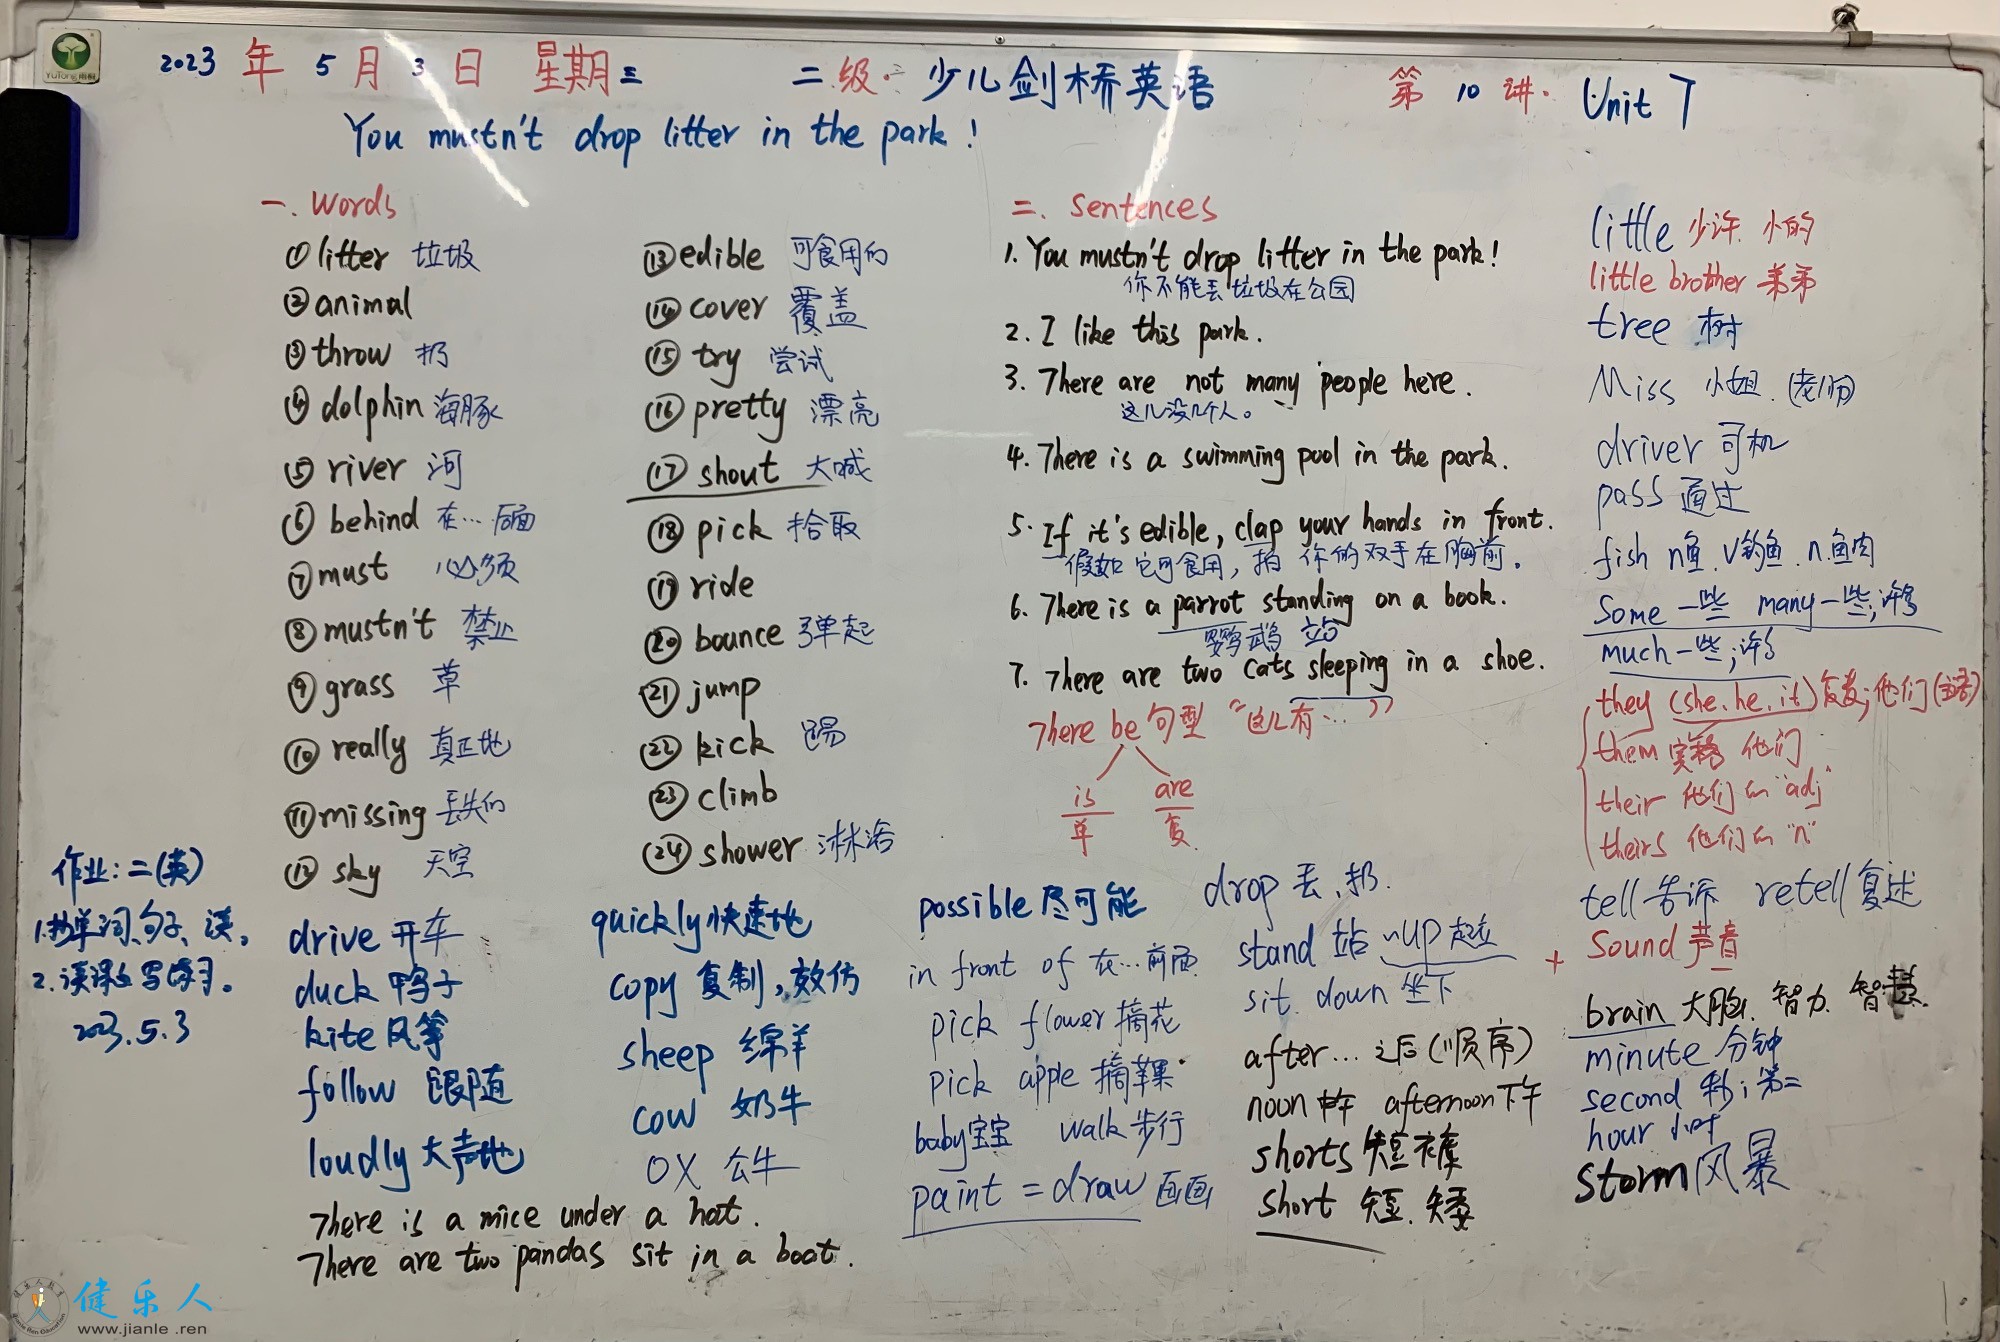 YuTong雨桐
2023 年 5 月 3 日 星期三 二级. 少儿剑桥英语 第 10 讲. Unit 7
You mustn't drop litter in the park!
一. Words
①litter 垃圾
②animal
③throw 扔
④dolphin 海豚
⑤river 河
⑥behind 在…后面
⑦must 必须
⑧mustn't 禁止
⑨grass 草
⑩really 真正地
⑪missing 丢失的
⑫sky 天空
⑬edible 可食用的
⑭cover 覆盖
⑮try 尝试
⑯pretty 漂亮
⑰shout 大喊
⑱pick 拾取
⑲ride
⑳bounce 弹起
㉑jump
㉒kick 踢
㉓climb
㉔shower 淋浴
二. Sentences
1. You mustn't drop litter in the park!
你不能丢垃圾在公园
2. I like this park.
3. There are not many people here.
这儿没几个人。
4. There is a swimming pool in the park.
5. If it's edible, clap your hands in front.
假如 它可食用, 拍 你的双手在胸前.
6. There is a parrot standing on a book.
鹦鹉 站
7. There are two cats sleeping in a shoe.
There be 句型 "这儿有…"
is are
单 复
little 少许. 小的
little brother 弟弟
tree 树
Miss 小姐. (老师)
driver 司机
pass 通过
fish n鱼. v钓鱼. n.鱼肉
some 一些 many一些;许多
much一些;许多
they (she.he.it)复数;他们(主语)
them 宾格 他们
their 他们的"adj"
theirs 他们的"n"
tell 告诉 retell 复述
+ Sound 声音
brain 大脑. 智力. 智慧.
minute 分钟
second 秒;第二
hour 小时
storm 风暴
作业:二(英)
1.抄单词、句子、读。
2.读课文写练习。
2023.5.3
drive 开车
duck 鸭子
kite 风筝
follow 跟随
loudly 大声地
quickly 快速地
copy 复制,效仿
sheep 绵羊
cow 奶牛
OX 公牛
There is a mice under a hat.
There are two pandas sit in a boat.
possible 尽可能
in front of 在…前面
pick flower 摘花
pick apple 摘苹果
baby宝宝 walk 步行
paint = draw 画画
drop 丢.扔.
stand 站 ~up 起立
sit down 坐下
after… 之后(顺序)
noon 中午 afternoon下午
shorts 短裤
short 短.矮
健乐人
www.jianle .ren